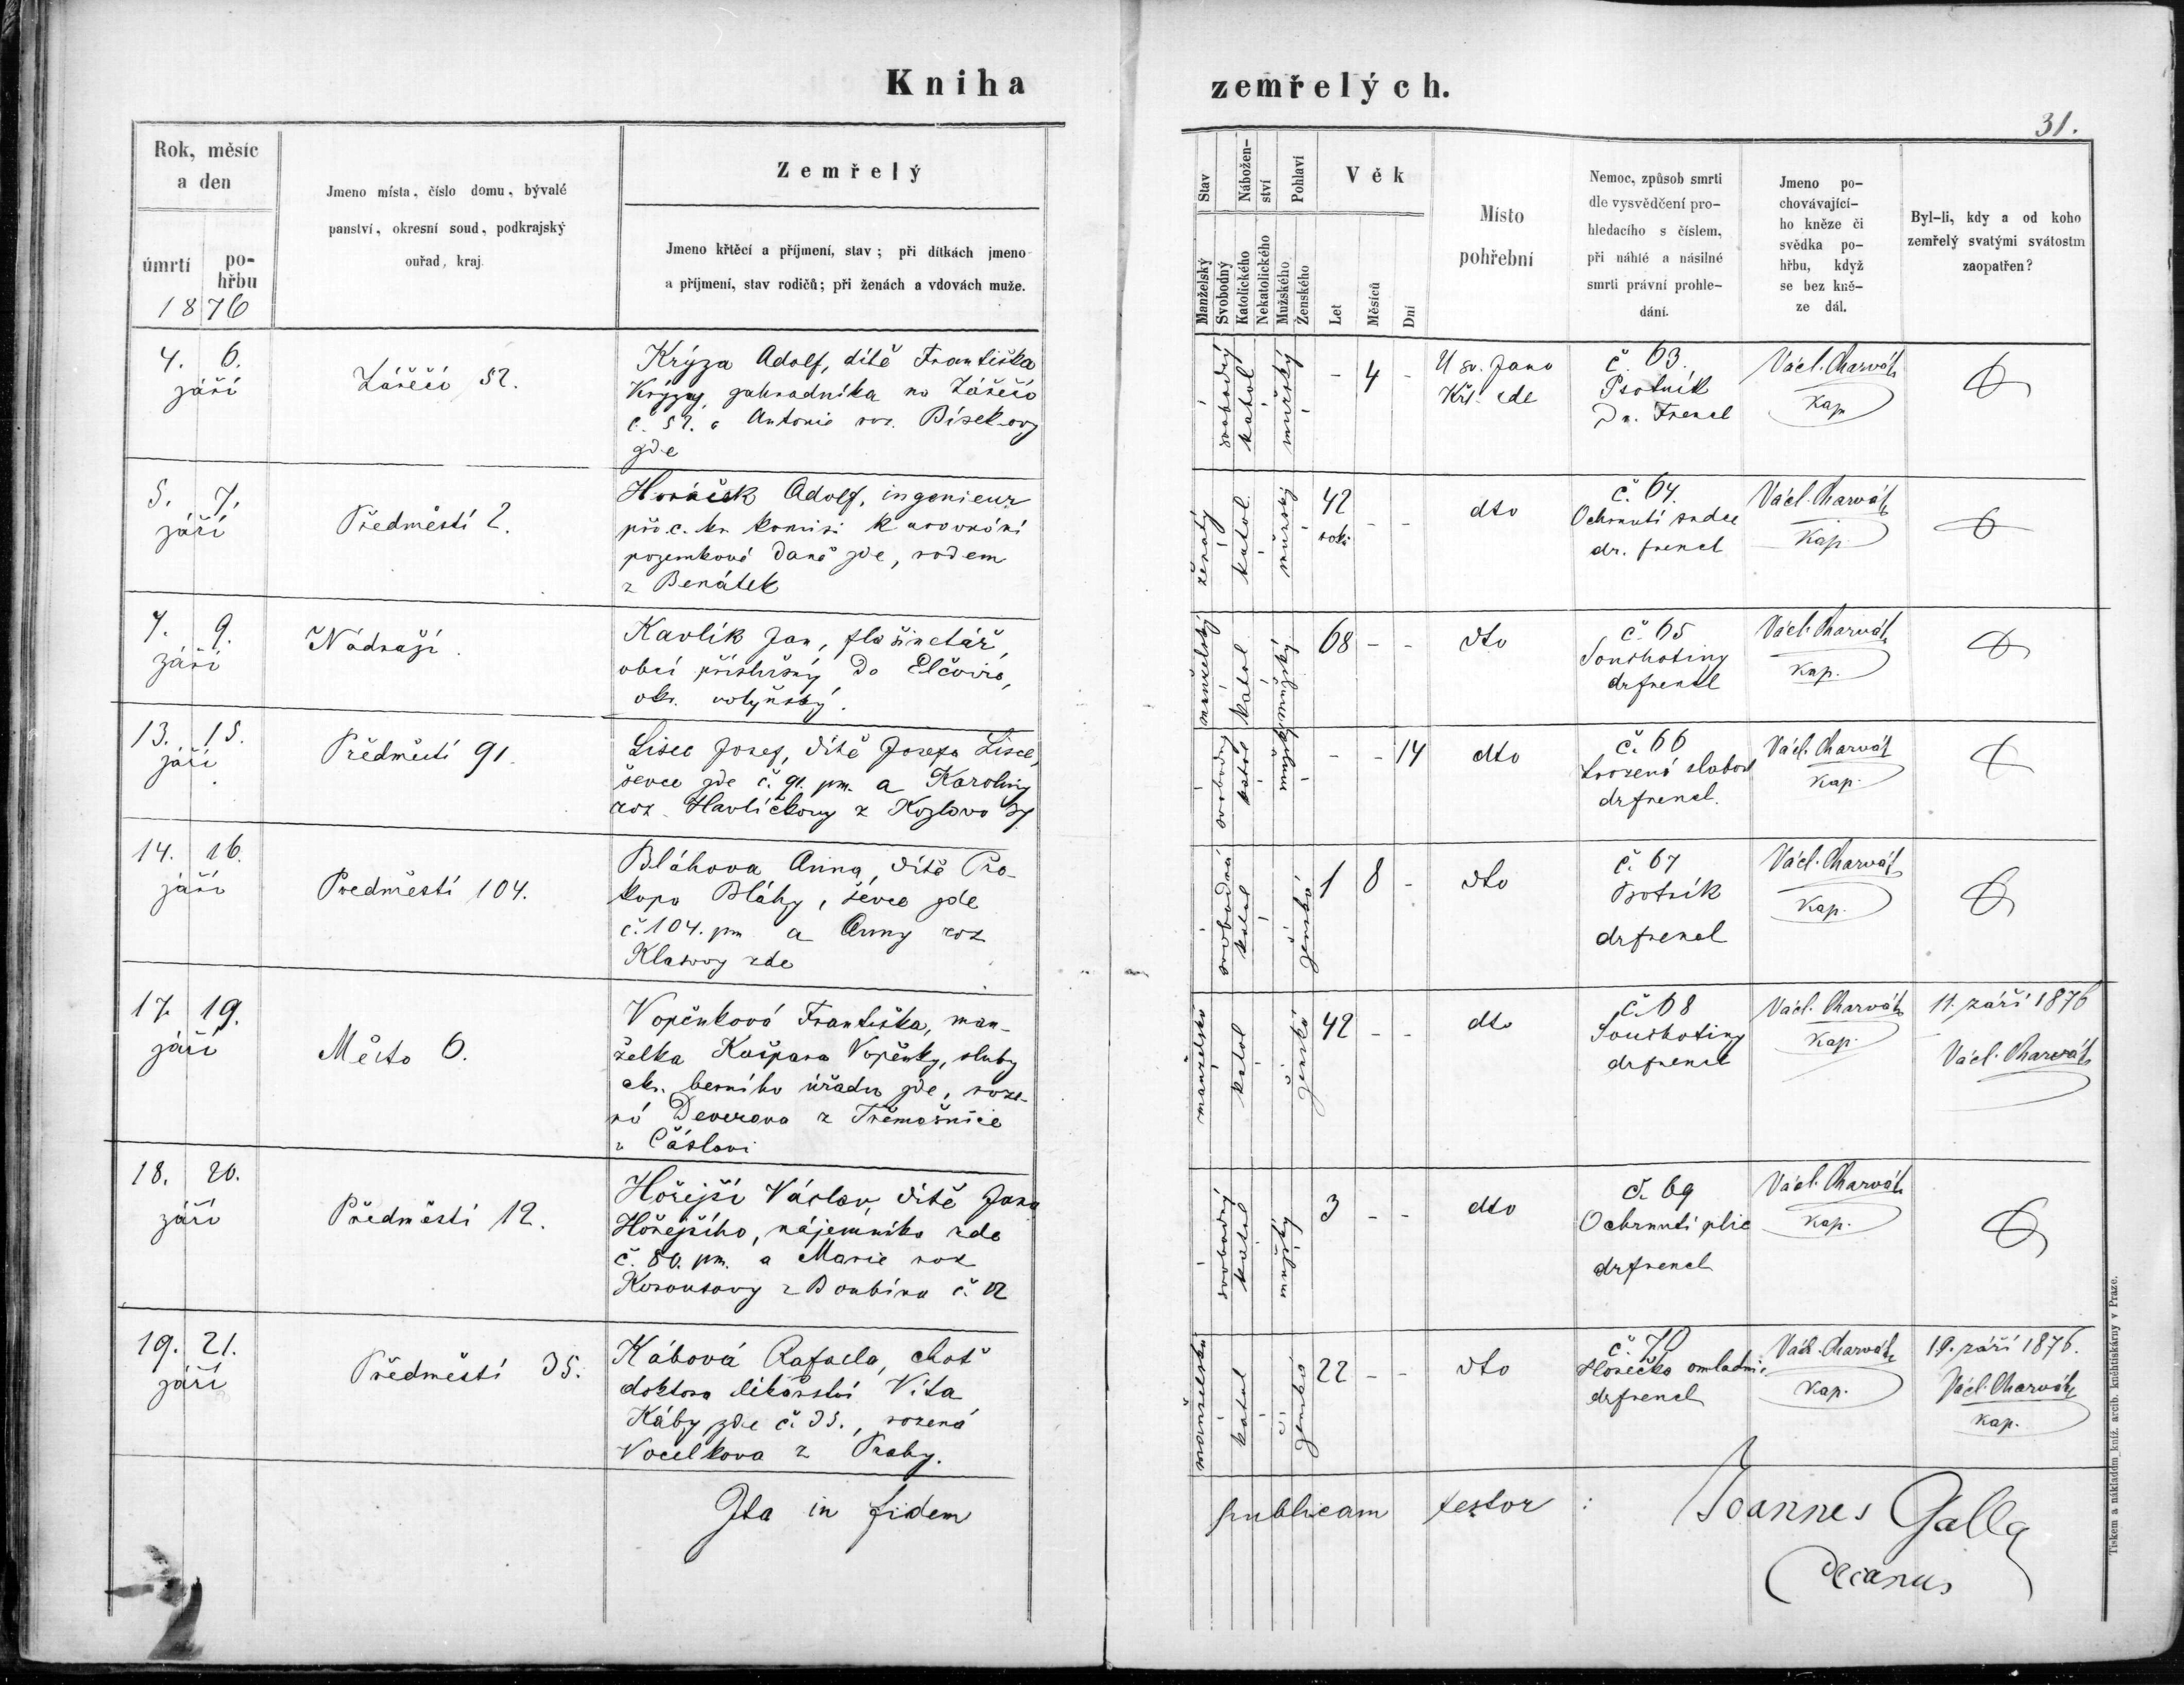 Kniha zemřelých.
31.
Rok, měsíc a den
úmrtí
pohřbu
1876
Jmeno místa, číslo domu, bývalé panství, okresní soud, podkrajský ouřad, kraj.
Zemřelý
Jmeno křtěcí a příjmení, stav; při dítkách jmeno
a příjmení, stav rodičů; při ženách a vdovách muže.
Stav
Manželský
Svobodný
Náboženství
Katolického
Nekatolického
Pohlaví
Mužského
Ženského
Věk
Let
Měsíců
Dní
Místo pohřební
Nemoc, způsob smrti
dle vysvědčení pro-
hledacího s číslem,
při náhlé a násilné
smrti právní prohle-
dání.
Jmeno po-
chovávající-
ho kněze či
svědka po-
hřbu, když
se bez kně-
ze dál.
Byl-li, kdy a od koho
zemřelý svatými svátostm
zaopatřen?
4. 6.
září
Zářečí 52.
Krýza Adolf, dítě Františka
Krýzy, zahradníka na Zářečí
č. 52. a Antonie roz. Bísekovy
zde
svobodný katol mužský
- 4 -
U sv. Jana
Kř. zde
č. 63.
Psotník
Dr. Frencl
Václ. Charvát
Kap
5. 7.
září
Předměstí 2.
Horáček Adolf, ingenieur
při c. kr. komisi k urovnání
pozemkové daně zde, rodem
z Benátek
ženatý katol. mužský
42 - -
roků
dto
č. 64.
Ochrnutí srdce
dr. frencl
Václ. Charvát
Kap.
7. 9.
září
Nádraží.
Kavlík Jan, flašinetář,
obcí příslušný do Elčovic,
okr. volyňský.
manželský katol mužský
68 - -
dto
č. 65
Souchotiny
dr frencl
Václ. Charvát
Kap.
13. 15.
září
Předměstí 91.
Lisec Josef, dítě Josefa Lisce,
ševce zde č. 91. pm. a Karoliny
roz. Havlíčkovy z Kozlova
svobodný katol mužský
- - 14
dto
č. 66
vrozená slabost
dr frencl.
Václ. Charvát
Kap.
14. 16.
září
Předměstí 104.
Bláhova Anna, dítě Pro-
kopa Bláhy, ševce zde
č. 104. pm a Anny roz
zde
svobodná katol ženská
1 8 -
dto
č. 67
Psotník
dr frencl
Václ. Charvát
Kap.
17. 19.
září
Město 6.
Vopěnková Františka, man-
želka Kašpara Vopěnky, sluhy
okr. berního úřadu zde, roze-
ná Deverova z Třemošnice
u Čáslavi
manželská katol ženská
42 - -
dto
č. 68
Souchotiny
dr frencl
Václ. Charvát
Kap.
11. září 1876
Václ. Charvát
18. 20.
září
Předměstí 12.
Hořejší Václav, dítě Jana
Hořejšího, nájemníka zde
č. 80. pm. a Marie roz
z Boubína č. 12
svobodný katol mužský
3 - -
dto
č. 69
Ochrnutí plic
dr frencl
Václ. Charvát
Kap.
19. 21.
září
Předměstí 35.
Kábová Rafaela, choť
doktora lékařství Víta
Káby zde č. 35., rozená
Vocelkova z Prahy.
manželská katol ženská
22 - -
dto
č. 70
Horečka omladnic
dr frencl
Václ. Charvát
Kap.
19. září 1876.
Václ. Charvát
Kap.
Ita in fidem publicam testor : Joannes Galla
Decanus
Tiskem a nákladem kníž. arcib. kněhtiskárny v Praze.